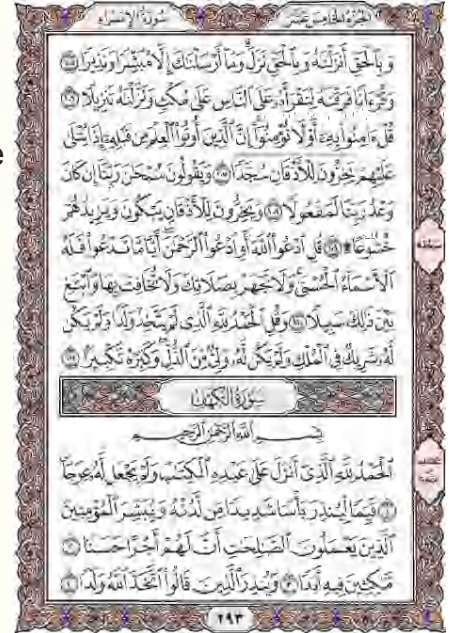 الجزء الخامس عشر
سورة الإسراء
وَبِالْحَقِّ أَنزَلْنَٰهُ وَبِالْحَقِّ نَزَلَ وَمَا أَرْسَلْنَٰكَ إِلَّا مُبَشِّرًا وَنَذِيرًا ١٠٥
وَقُرْءَانًا فَرَقْنَٰهُ لِتَقْرَأَهُ عَلَى النَّاسِ عَلَىٰ مُكْثٍ وَنَزَّلْنَٰهُ تَنزِيلًا ١٠٦
قُلْ ءَامِنُوا بِهِ أَوْ لَا تُؤْمِنُوا إِنَّ الَّذِينَ أُوتُوا الْعِلْمَ مِن قَبْلِهِ إِذَا يُتْلَىٰ
عَلَيْهِمْ يَخِرُّونَ لِلْأَذْقَانِ سُجَّدًا ١٠٧ وَيَقُولُونَ سُبْحَٰنَ رَبِّنَا إِن كَانَ
وَعْدُ رَبِّنَا لَمَفْعُولًا ١٠٨ وَيَخِرُّونَ لِلْأَذْقَانِ يَبْكُونَ وَيَزِيدُهُمْ
خُشُوعًا ۩ ١٠٩ قُلِ ادْعُوا اللَّهَ أَوِ ادْعُوا الرَّحْمَٰنَ أَيًّا مَّا تَدْعُوا فَلَهُ
الْأَسْمَاءُ الْحُسْنَىٰ وَلَا تَجْهَرْ بِصَلَاتِكَ وَلَا تُخَافِتْ بِهَا وَابْتَغِ
بَيْنَ ذَٰلِكَ سَبِيلًا ١١٠ وَقُلِ الْحَمْدُ لِلَّهِ الَّذِي لَمْ يَتَّخِذْ وَلَدًا وَلَمْ يَكُن
لَّهُ شَرِيكٌ فِي الْمُلْكِ وَلَمْ يَكُن لَّهُ وَلِيٌّ مِّنَ الذُّلِّ وَكَبِّرْهُ تَكْبِيرًا ١١١
سورة الكهف
بِسْمِ اللَّهِ الرَّحْمَٰنِ الرَّحِيمِ
الْحَمْدُ لِلَّهِ الَّذِي أَنزَلَ عَلَىٰ عَبْدِهِ الْكِتَٰبَ وَلَمْ يَجْعَل لَّهُ عِوَجَا
١ قَيِّمًا لِّيُنذِرَ بَأْسًا شَدِيدًا مِّن لَّدُنْهُ وَيُبَشِّرَ الْمُؤْمِنِينَ
الَّذِينَ يَعْمَلُونَ الصَّٰلِحَٰتِ أَنَّ لَهُمْ أَجْرًا حَسَنًا ٢
مَّٰكِثِينَ فِيهِ أَبَدًا ٣ وَيُنذِرَ الَّذِينَ قَالُوا اتَّخَذَ اللَّهُ وَلَدًا ٤
٢٩٣